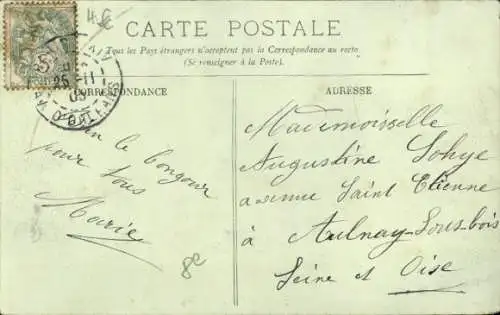 4€
CARTE POSTALE
Tous les Pays étrangers n'acceptent pas la Correspondance au recto
(Se renseigner à la Poste).
25 -11
CORRESPONDANCE
le bonjour
pour tous
Marie
8€
ADRESSE
Mademoiselle
Augustine Lohye
avenue Saint Etienne
à Aulnay-Sous-bois
Seine et Oise